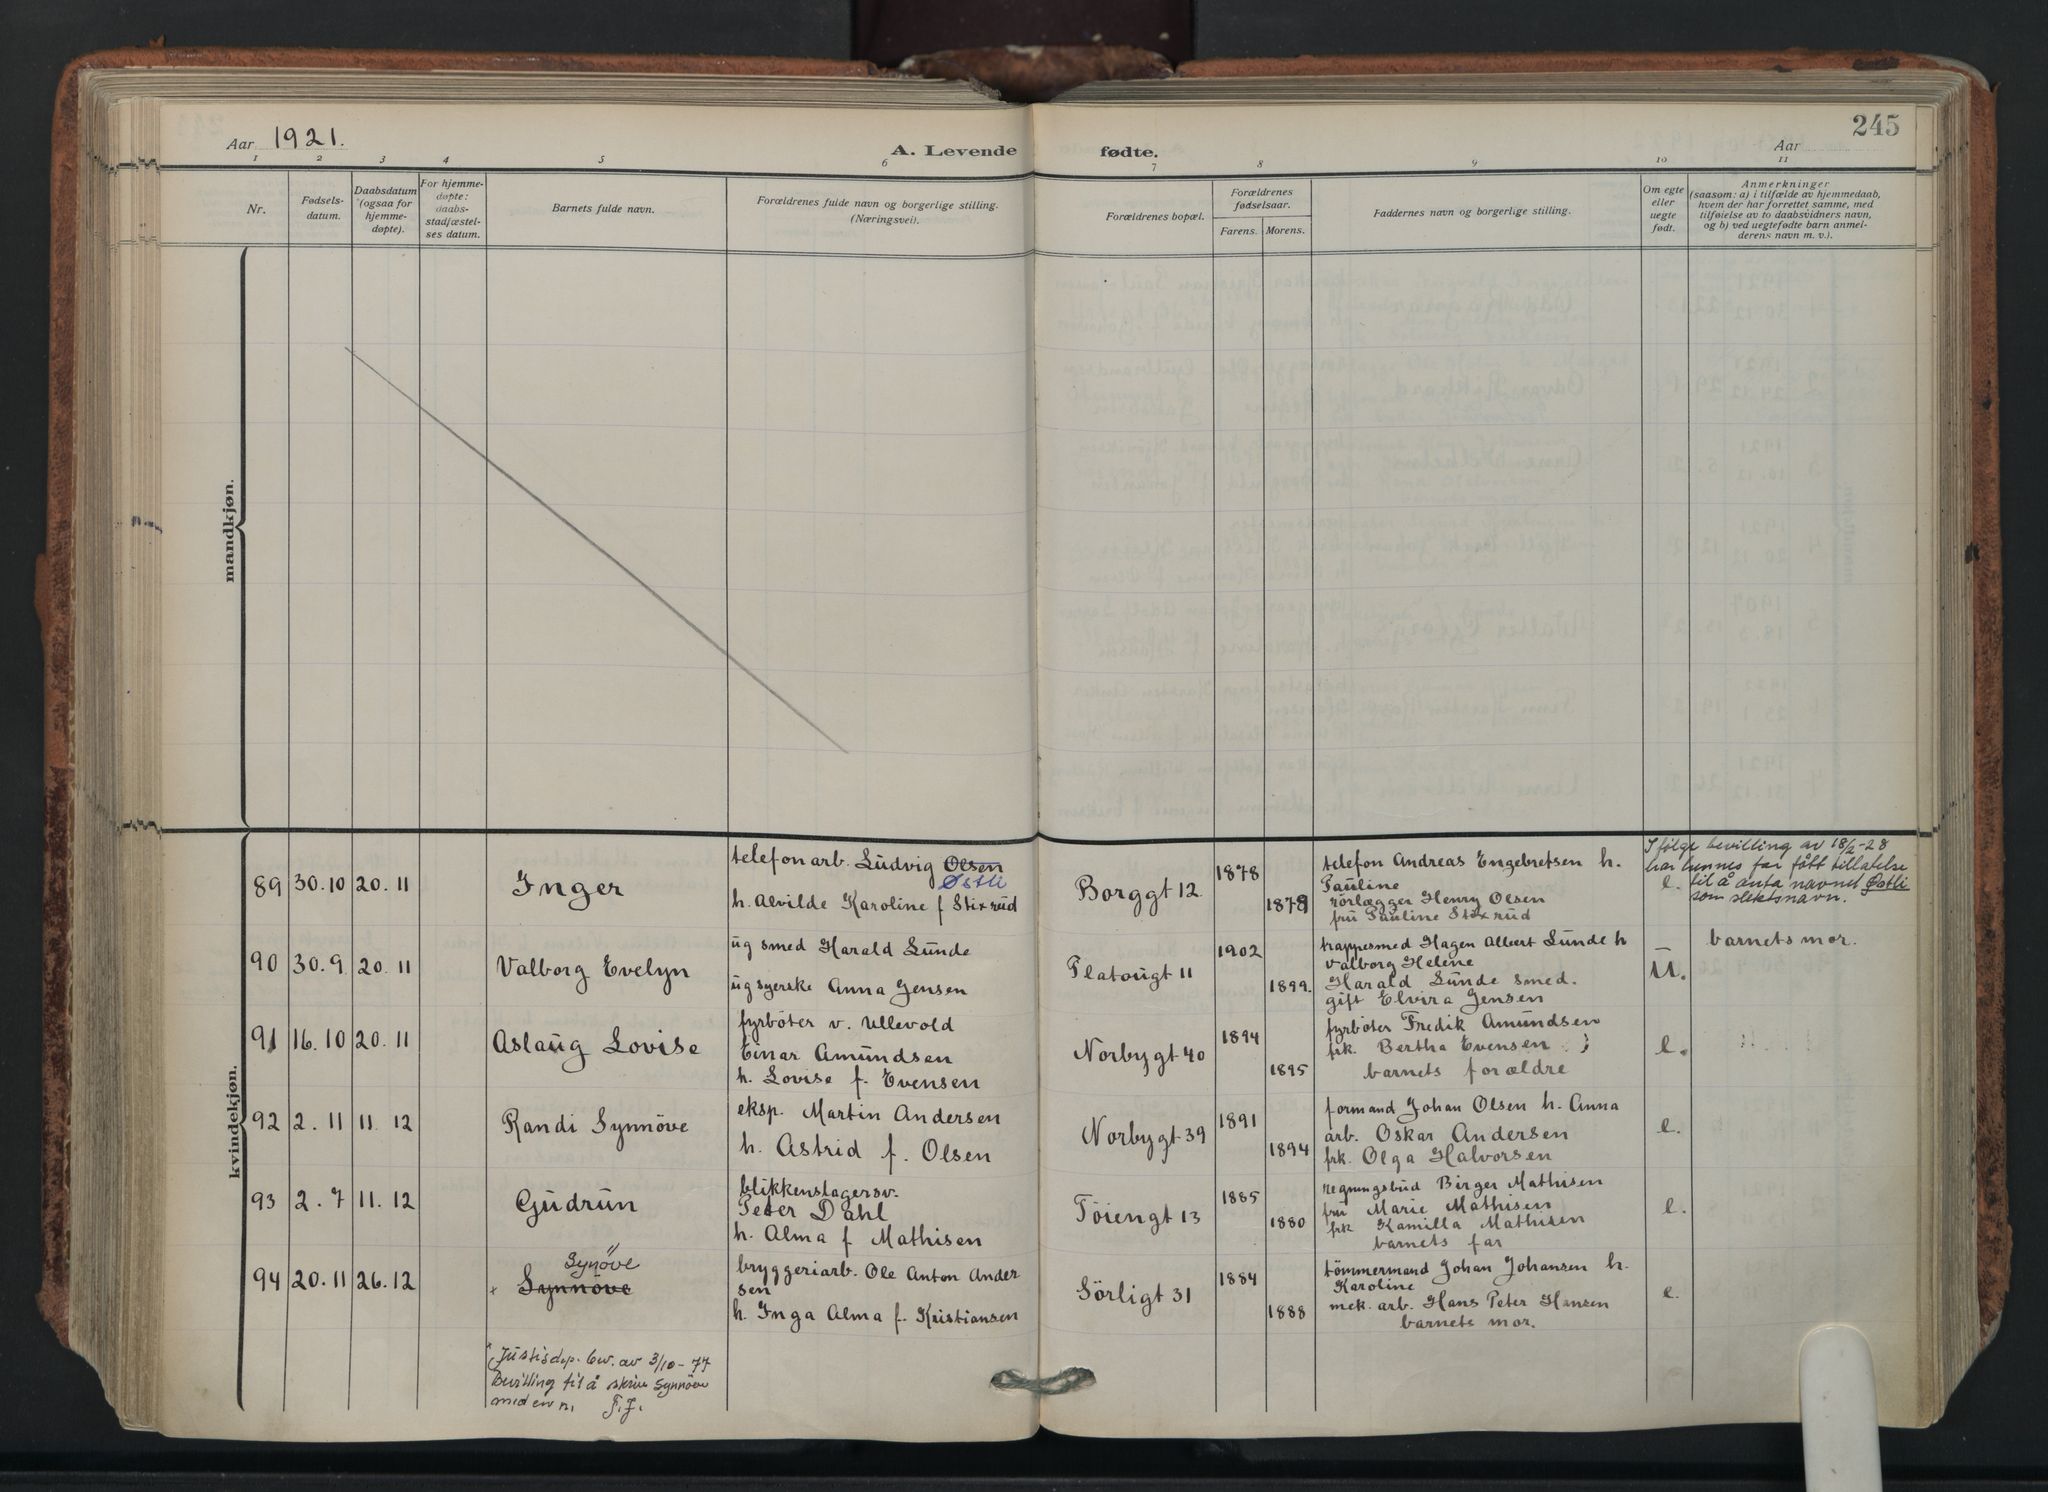 245
Aar 1921.
A. Levende fødte.
Aar
1 2 3 4 5 6 7 8 9 10 11
Nr.
Fødsels-
datum.
Daabsdatum
(ogsaa for
hjemme-
døpte).
For hjemme-
døpte:
daabs-
stadfæstel-
ses datum.
Barnets fulde navn.
Forældrenes fulde navn og borgerlige stilling.
(Næringsvei).
Forældrenes bopæl.
Forældrenes
fødselsaar.
Farens. Morens.
Faddernes navn og borgerlige stilling.
Om egte
eller
uegte
født.
Anmerkninger
(saasom: a) i tilfælde av hjemmedaab,
hvem der har forrettet samme, med
tilføielse av to daabsvidners navn,
og b) ved uegtefødte barn anmel-
derens navn m. v.).
mandkjøn.
kvindekjøn.
89 30.10 20.11
Inger
telefonarb. Ludvig Olsen
Østli
h. Alvilde Karoline f Stixrud
Borggt 12
1878
1879
telefon Andreas Engebretsen h.
Pauline
rörlægger Henry Olsen
fru Pauline Stixrud
e.
Ifølge bevilling av 18/2-28
har hennes far fått tillatelse
til å anta navnet Østli
som slektsnavn.
90 30.9 20.11
Valborg Evelyn
ug smed Harald Lunde
ug syerske Anna Jensen
Platougt 11
1902
1899.
trappesmed Hagen Albert Lunde h
Valborg Helene
Harald Lunde smed.
gift Elvira Jensen
U.
barnets mor.
91 16.10 20.11
Aslaug Lovise
fyrböter v. Ullevold
Einar Amundsen
h. Lovise f. Evensen
Norbygt 40
1894
1895
fyrböter Fredik Amundsen
frk. Bertha Evensen
barnets forældre
e.
92 2.11 11.12
Randi Synnöve
eksp. Martin Andersen
h. Astrid f. Olsen
Norbygt 39
1891
1894
formand Johan Olsen h. Anna
arb. Oskar Andersen
frk. Olga Halvorsen
e.
93 2.7 11.12
Gudrun
blikkenslagersv.
Peter Dahl
h. Alma f Mathisen
Töiengt 13
1885
1880
regningsbud Birger Mathisen
fru Marie Mathisen
frk Kamilla Mathisen
barnets far
e.
94 20.11 26.12
Synöve
x Synnöve
bryggeriarb. Ole Anton Ander
sen
h. Inga Alma f. Kristiansen
Sörligt 31
1884
1888
tömmermand Johan Johansen h.
Karoline
mek. arb. Hans Peter Hansen
barnets mor.
e.
x Justisdep. bev. av 3/10-77
Bevilling til å skrive Synnöve
med en n. F.J.